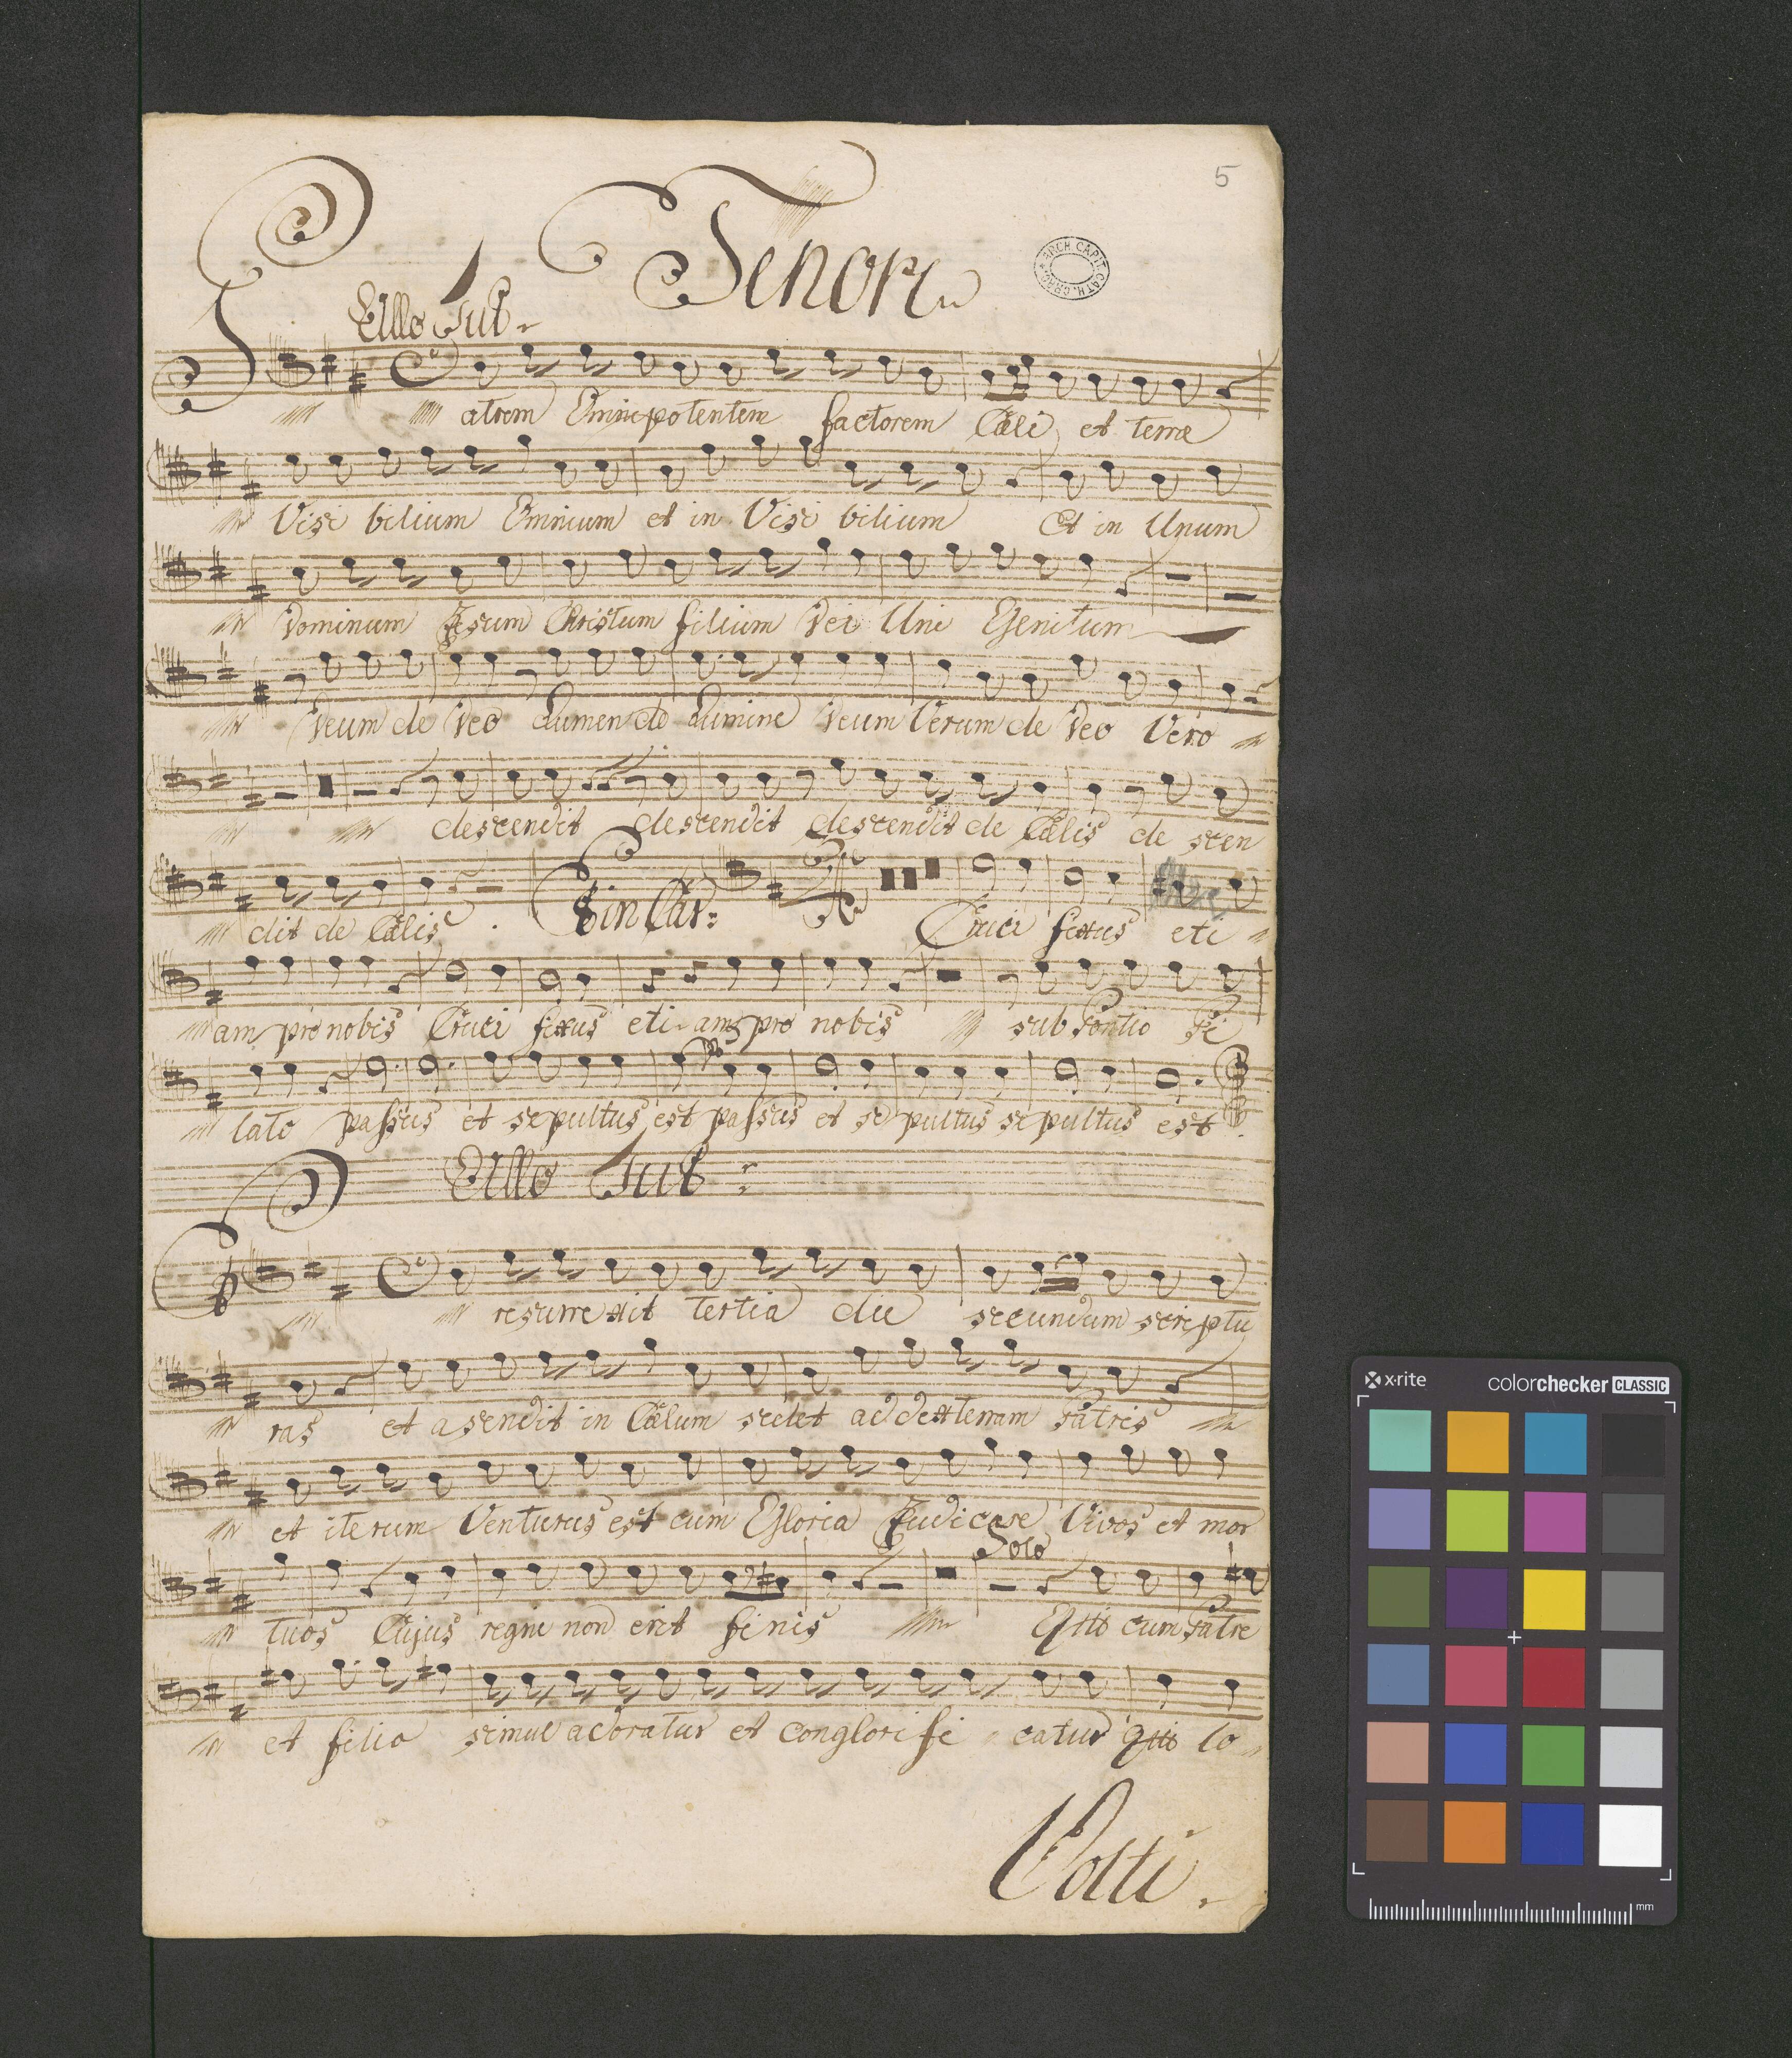 5
Tenore
ARCH. CAPIT. CATH. CRAC.
Allo
atrem Omnipotentem factorem Cæli et terræ
Visi bilium Omnium et in Visi bilium Et in Unum
Dominum Jesum Christum filium Dei Uni Genitum
Deum de Deo Lumen de Lumine Deum Verum de Deo Vero
descendit descendit descendit de Cælis de scen
dit de Cælis. Cruci fixus eti
am pro nobis Cruci fixus eti am pro nobis sub Pontio Pi
lato passus et sepultus est passus et se pultus se pultus est
Allo
resurrexit tertia die secundum scriptu
ras et asendit in Cælum sedet ad dexteram Patris
et iterum Venturus est cum Gloria Judicare Vivos et mor
Solo
tuos Cujus regni non erit finis Qui cum Patre
et filio simul adoratur et conglorifi catur qui lo
Volti.
x·rite
colorchecker CLASSIC
mm